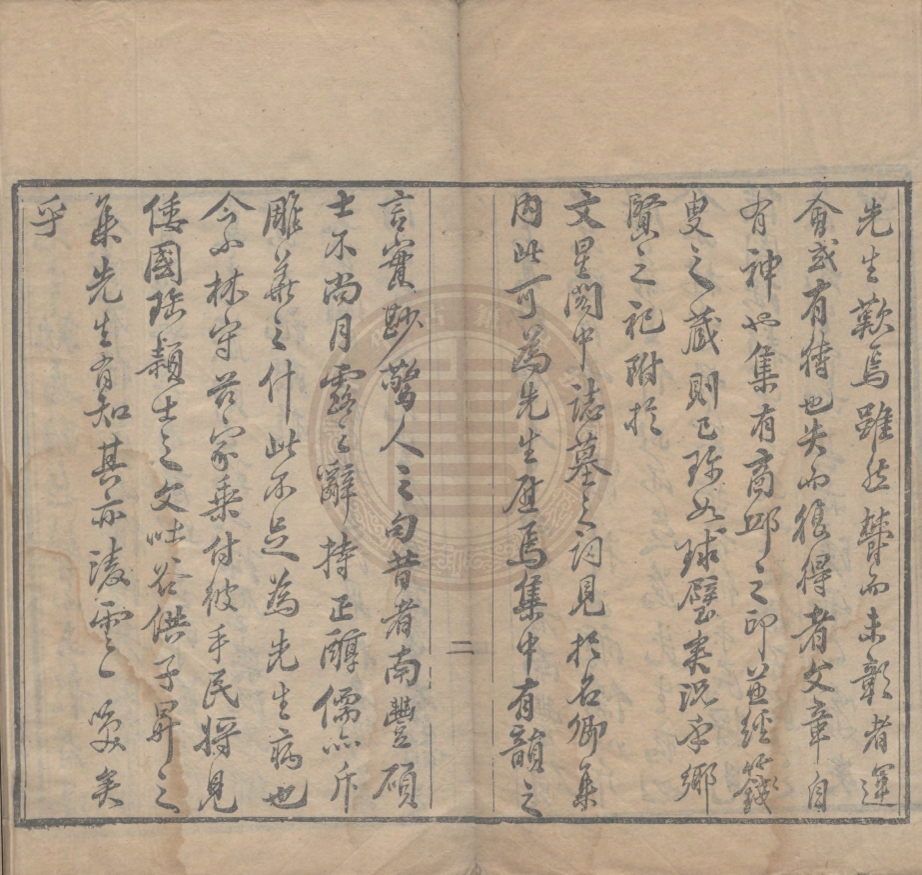 先生歎焉雖然而未彰者運
會或有待也失而復得者文章自
有神也集有商邱之印並經籛
叟之藏則已珍如球璧矣況本鄉
賢之祀附於
文星閣中誌墓之詞見於名卿集
內此可為先生慰焉集中有韻之
二
言實尠驚人之句昔者南豐碩
士不尚月露之辭持正醇儒亦斥
雕華之什此不足為先生病也
今小林守家乘付彼手民將見
倭國珍穎士之文吐谷供子昇之
集先生有知其亦凌雲一笑矣
乎